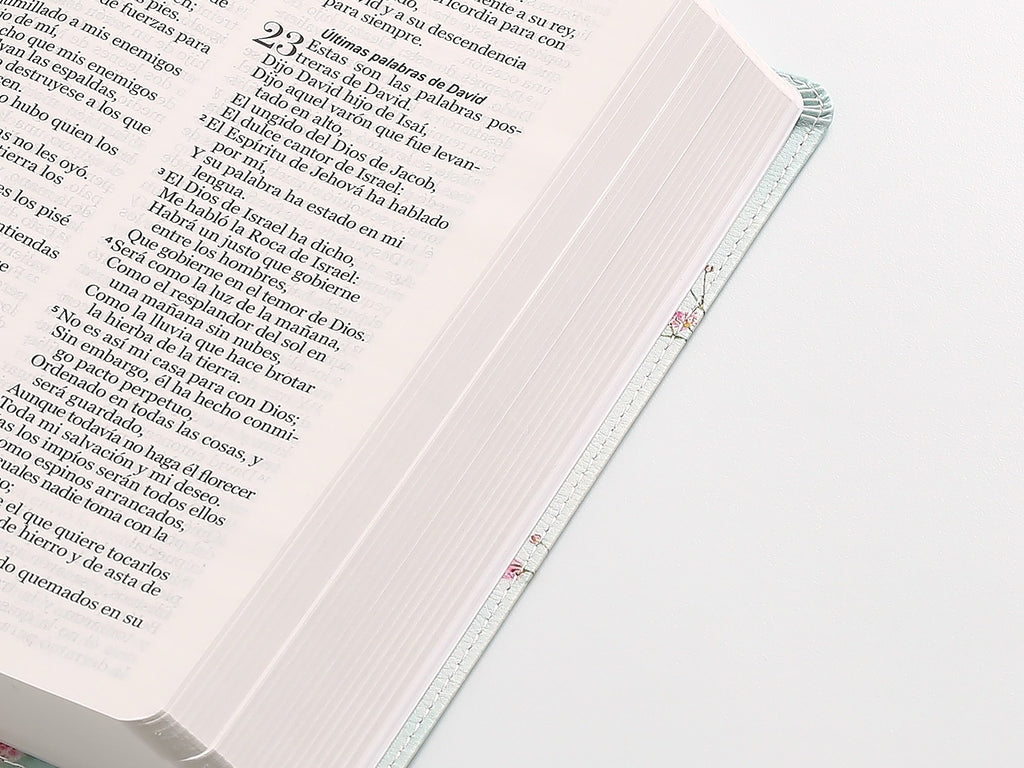 pies.
de fuerzas para
umillado a mis enemigos
cho que mis enemigos
van las espaldas,
destruyese a los que
hubo quien los
no les oyó.
tierra los
es los pisé
ntiendas
ente a su rey,
ricordia para con
vid y a su descendencia
para siempre.
Últimas palabras de David
23 Estas son las palabras pos-
treras de David.
Dijo David hijo de Isaí,
Dijo aquel varón que fue levan-
tado en alto,
El ungido del Dios de Jacob,
El dulce cantor de Israel:
2 El Espíritu de Jehová ha hablado
por mí,
Y su palabra ha estado en mi
lengua.
3 El Dios de Israel ha dicho,
Me habló la Roca de Israel:
Habrá un justo que gobierne
entre los hombres,
Que gobierne en el temor de Dios.
4 Será como la luz de la mañana,
Como el resplandor del sol en
una mañana sin nubes,
Como la lluvia que hace brotar
la hierba de la tierra.
5 No es así mi casa para con Dios;
Sin embargo, él ha hecho conmi-
go pacto perpetuo,
Ordenado en todas las cosas, y
será guardado,
Aunque todavía no haga él florecer
Toda mi salvación y mi deseo.
as los impíos serán todos ellos
omo espinos arrancados,
uales nadie toma con la
o;
e el que quiere tocarlos
de hierro y de asta de
do quemados en su